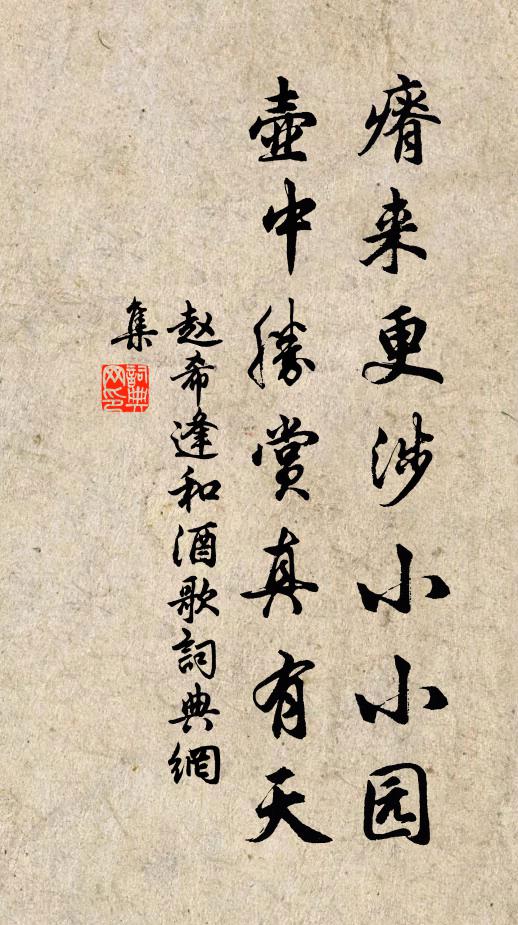 瘠来更涉小小园
壶中勝赏真有天
赵希逢和酒歌詞典網
集
詞典
网印